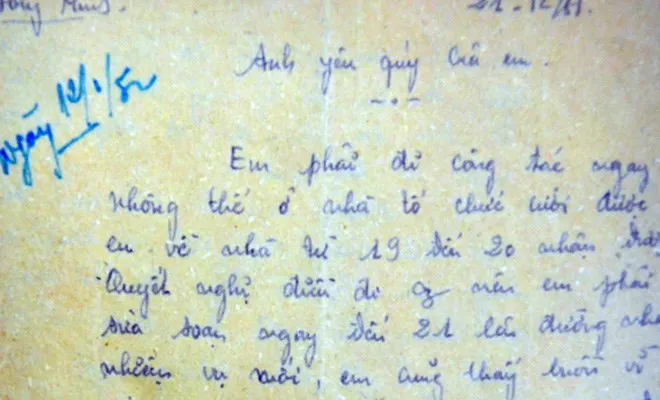 21-12/51.
Anh yêu quý của em.
Ngày 12/1/52
Em phải đi công tác ngay
không thể ở nhà tổ chức cưới được
em về nhà từ 19 đến 20 nhận được
Quyết nghị đi nên em phải
sửa soạn ngay đến 21 lên đường
nhiệm vụ mới, em cũng thấy buồn vì